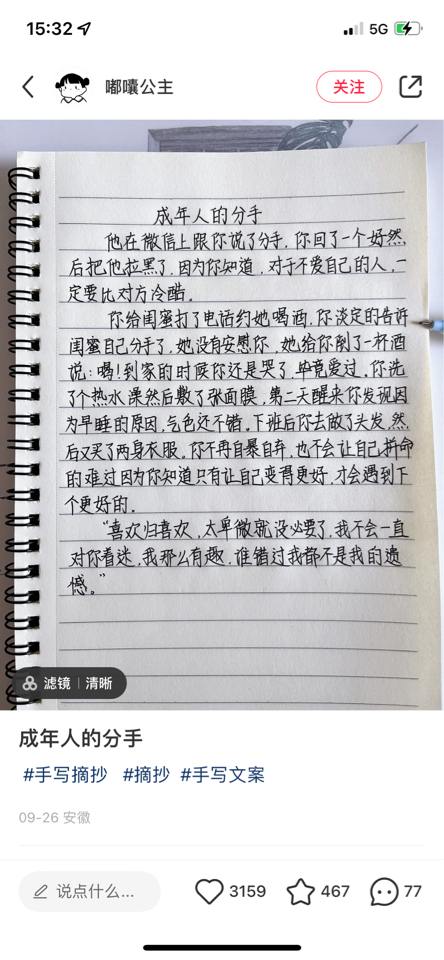 15:32
5G
嘟囔公主
关注
成年人的分手
他在微信上跟你说了分手,你回了一个好然
后把他拉黑了,因为你知道,对于不爱自己的人,一
定要比对方冷酷.
你给闺蜜打了电话约她喝酒,你淡定的告诉
闺蜜自己分手了,她没有安慰你,她给你倒了一杯酒
说:喝!到家的时候你还是哭了,毕竟爱过,你洗
了个热水澡然后敷了张面膜,第二天醒来你发现因
为早睡的原因,气色还不错.下班后你去做了头发,然
后又买了两身衣服,你不再自暴自弃,也不会让自己拼命
的难过因为你知道只有让自己变得更好,才会遇到下
个更好的.
“喜欢归喜欢,太卑微就没必要了,我不会一直
对你着迷,我那么有趣,谁错过我都不是我的遗
憾。”
滤镜 | 清晰
成年人的分手
#手写摘抄 #摘抄 #手写文案
09-26 安徽
说点什么...
3159
467
77